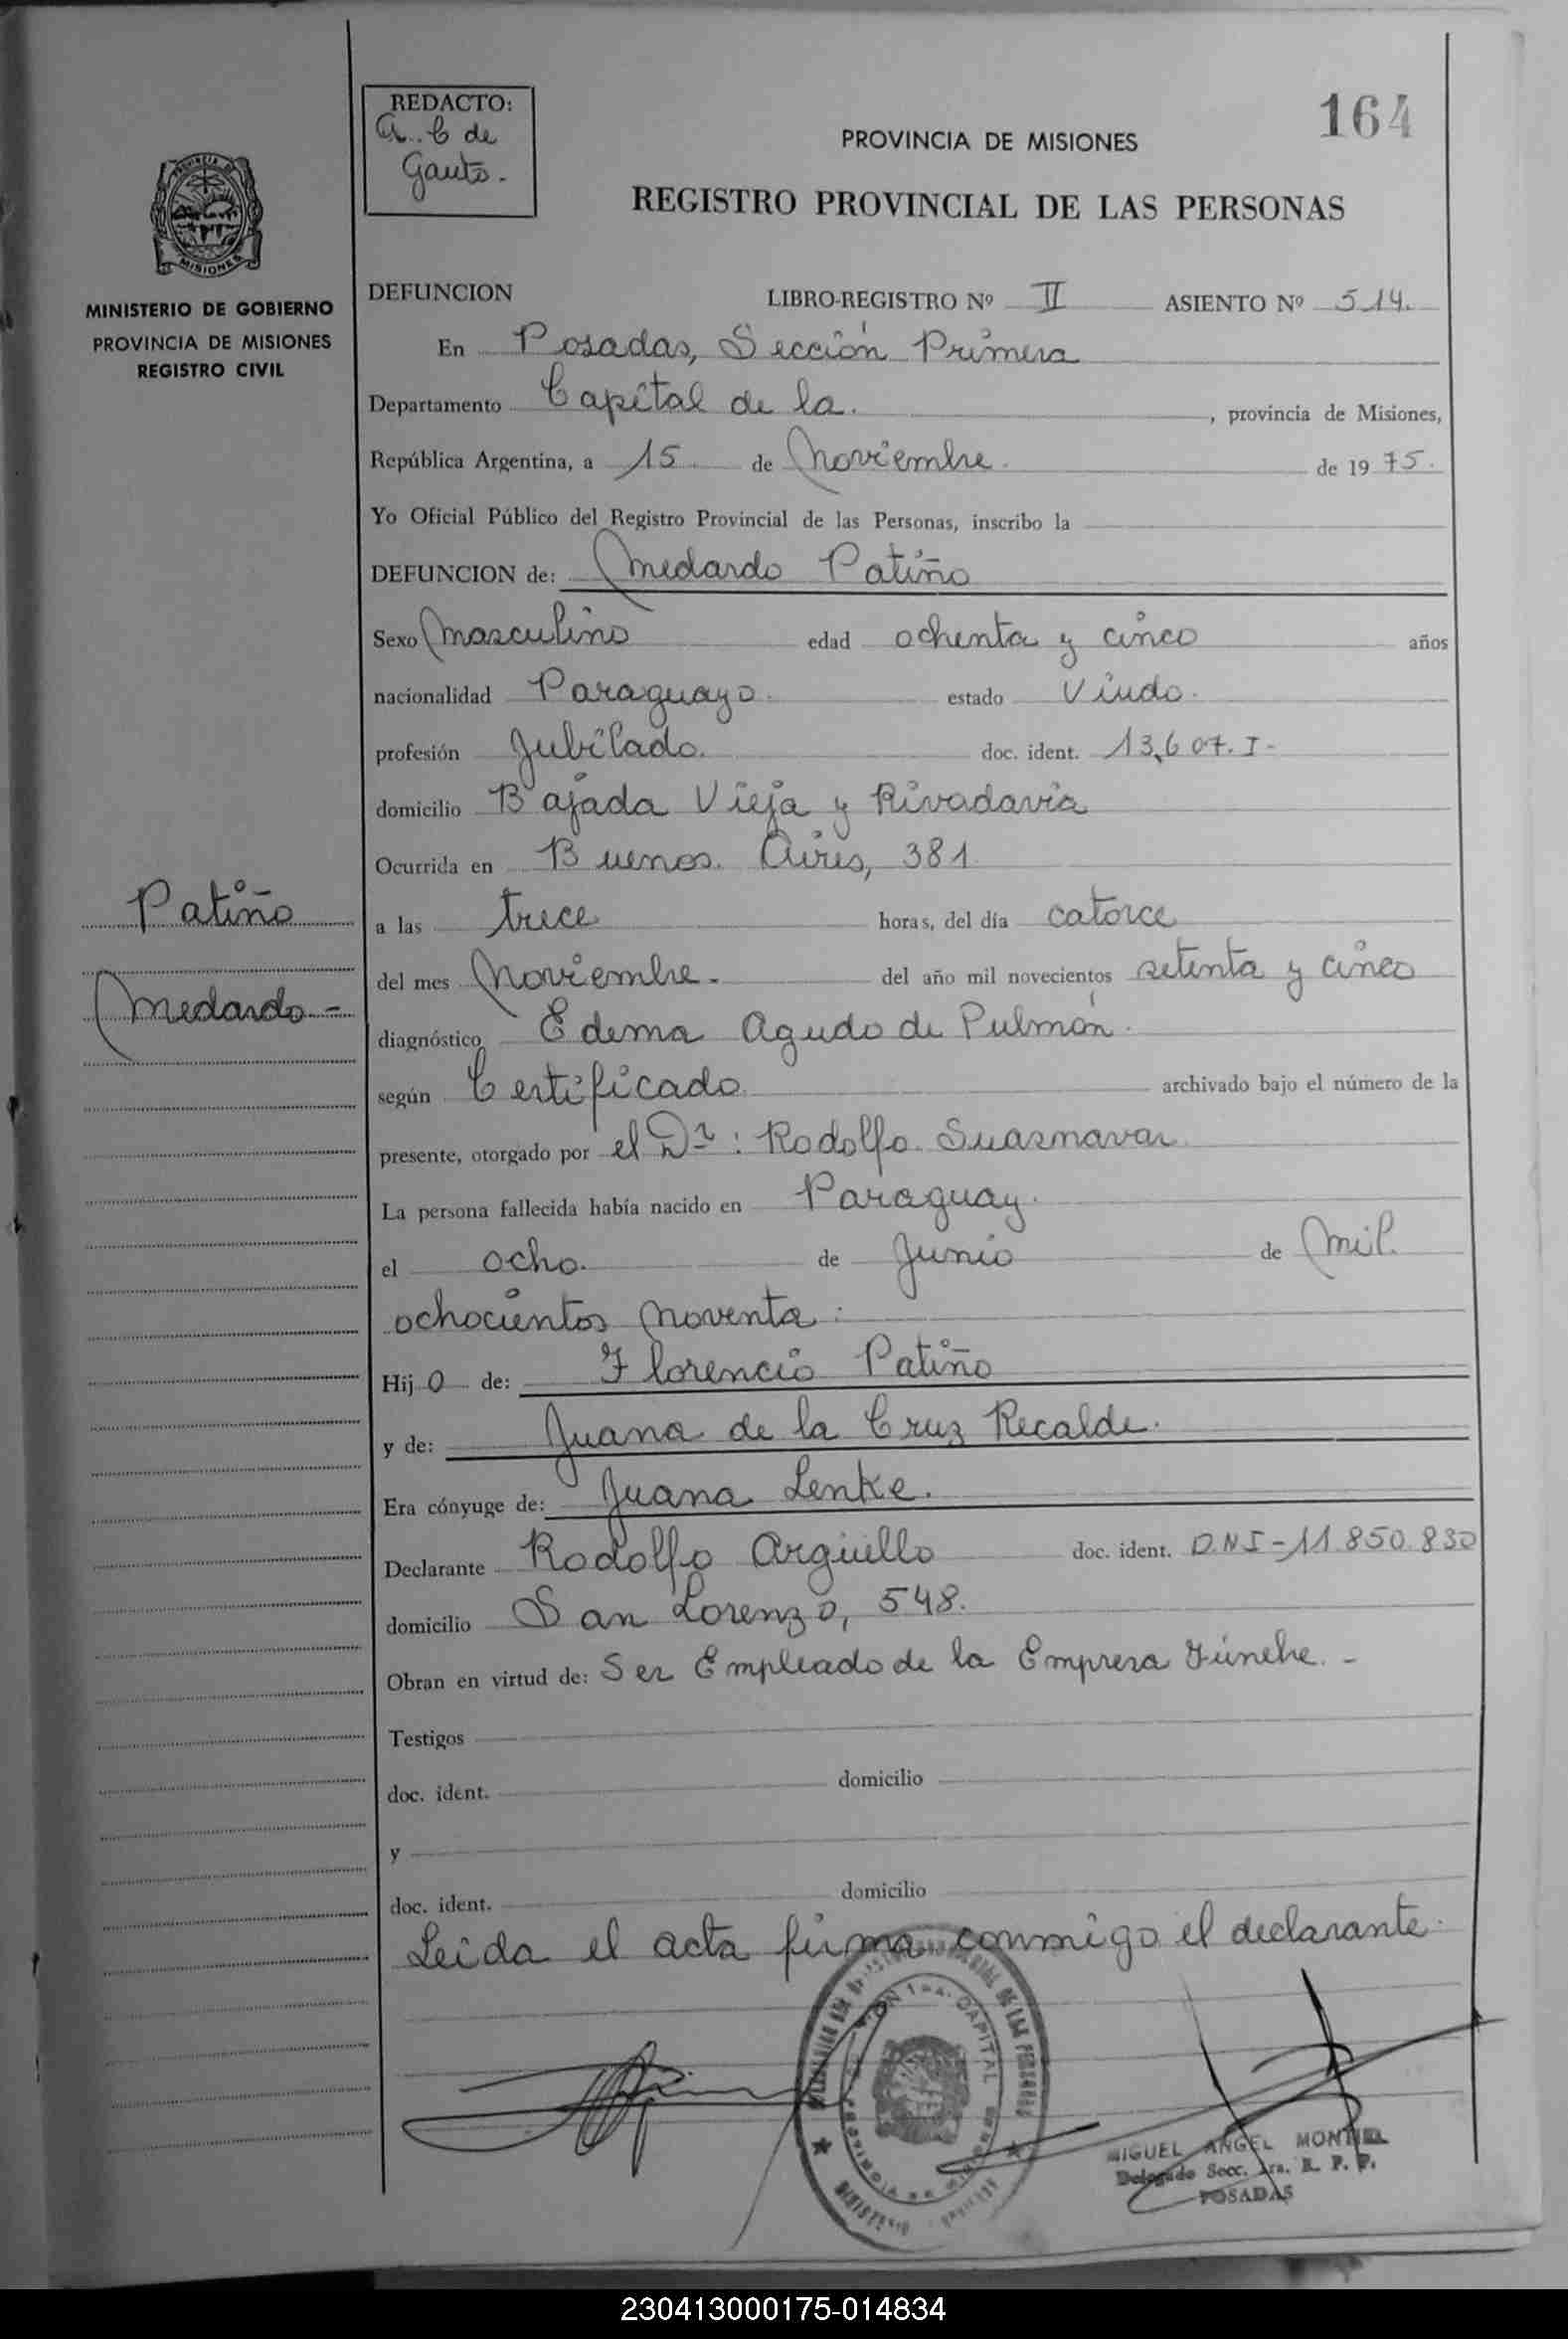 REDACTO:
A. C de
Gauto.-
164
PROVINCIA DE MISIONES
REGISTRO PROVINCIAL DE LAS PERSONAS
MISIONES
MINISTERIO DE GOBIERNO
PROVINCIA DE MISIONES
REGISTRO CIVIL
DEFUNCION LIBRO-REGISTRO Nº II ASIENTO Nº 514.
En Posadas, Sección Primera
Departamento Capital de la. , provincia de Misiones,
República Argentina, a 15 de Noviembre. de 19 75.
Yo Oficial Público del Registro Provincial de las Personas, inscribo la
DEFUNCION de: Medardo Patiño
Sexo Masculino edad ochenta y cinco años
nacionalidad Paraguayo. estado Viudo.
profesión Jubilado. doc. ident. 13.607. I-
domicilio Bajada Vieja y Rivadavia
Ocurrida en Buenos. Aires, 381
a las trece horas, del día catorce
del mes Noviembre.- del año mil novecientos setenta y cinco
diagnóstico Edema Agudo de Pulmón.
según Certificado archivado bajo el número de la
presente, otorgado por el Dr: Rodolfo Suasnavar
La persona fallecida había nacido en Paraguay.
el ocho. de Junio de Mil.
ochocientos Noventa.
Hij o de: Florencio Patiño
y de: Juana de la Cruz Recalde.
Era cónyuge de: Juana Lenke.
Declarante Rodolfo Argüello doc. ident. D.N.I-11.850.830
domicilio San Lorenzo, 548.
Obran en virtud de: Ser Empleado de la Empresa Fúnebre.-
Testigos
doc. ident. domicilio
y
doc. ident. domicilio
Leida el acta firma conmigo el declarante.
Patiño
Medardo-
MIGUEL ANGEL MONTIEL
Delegado Secc. 1ra. R. P. P.
POSADAS
230413000175-014834